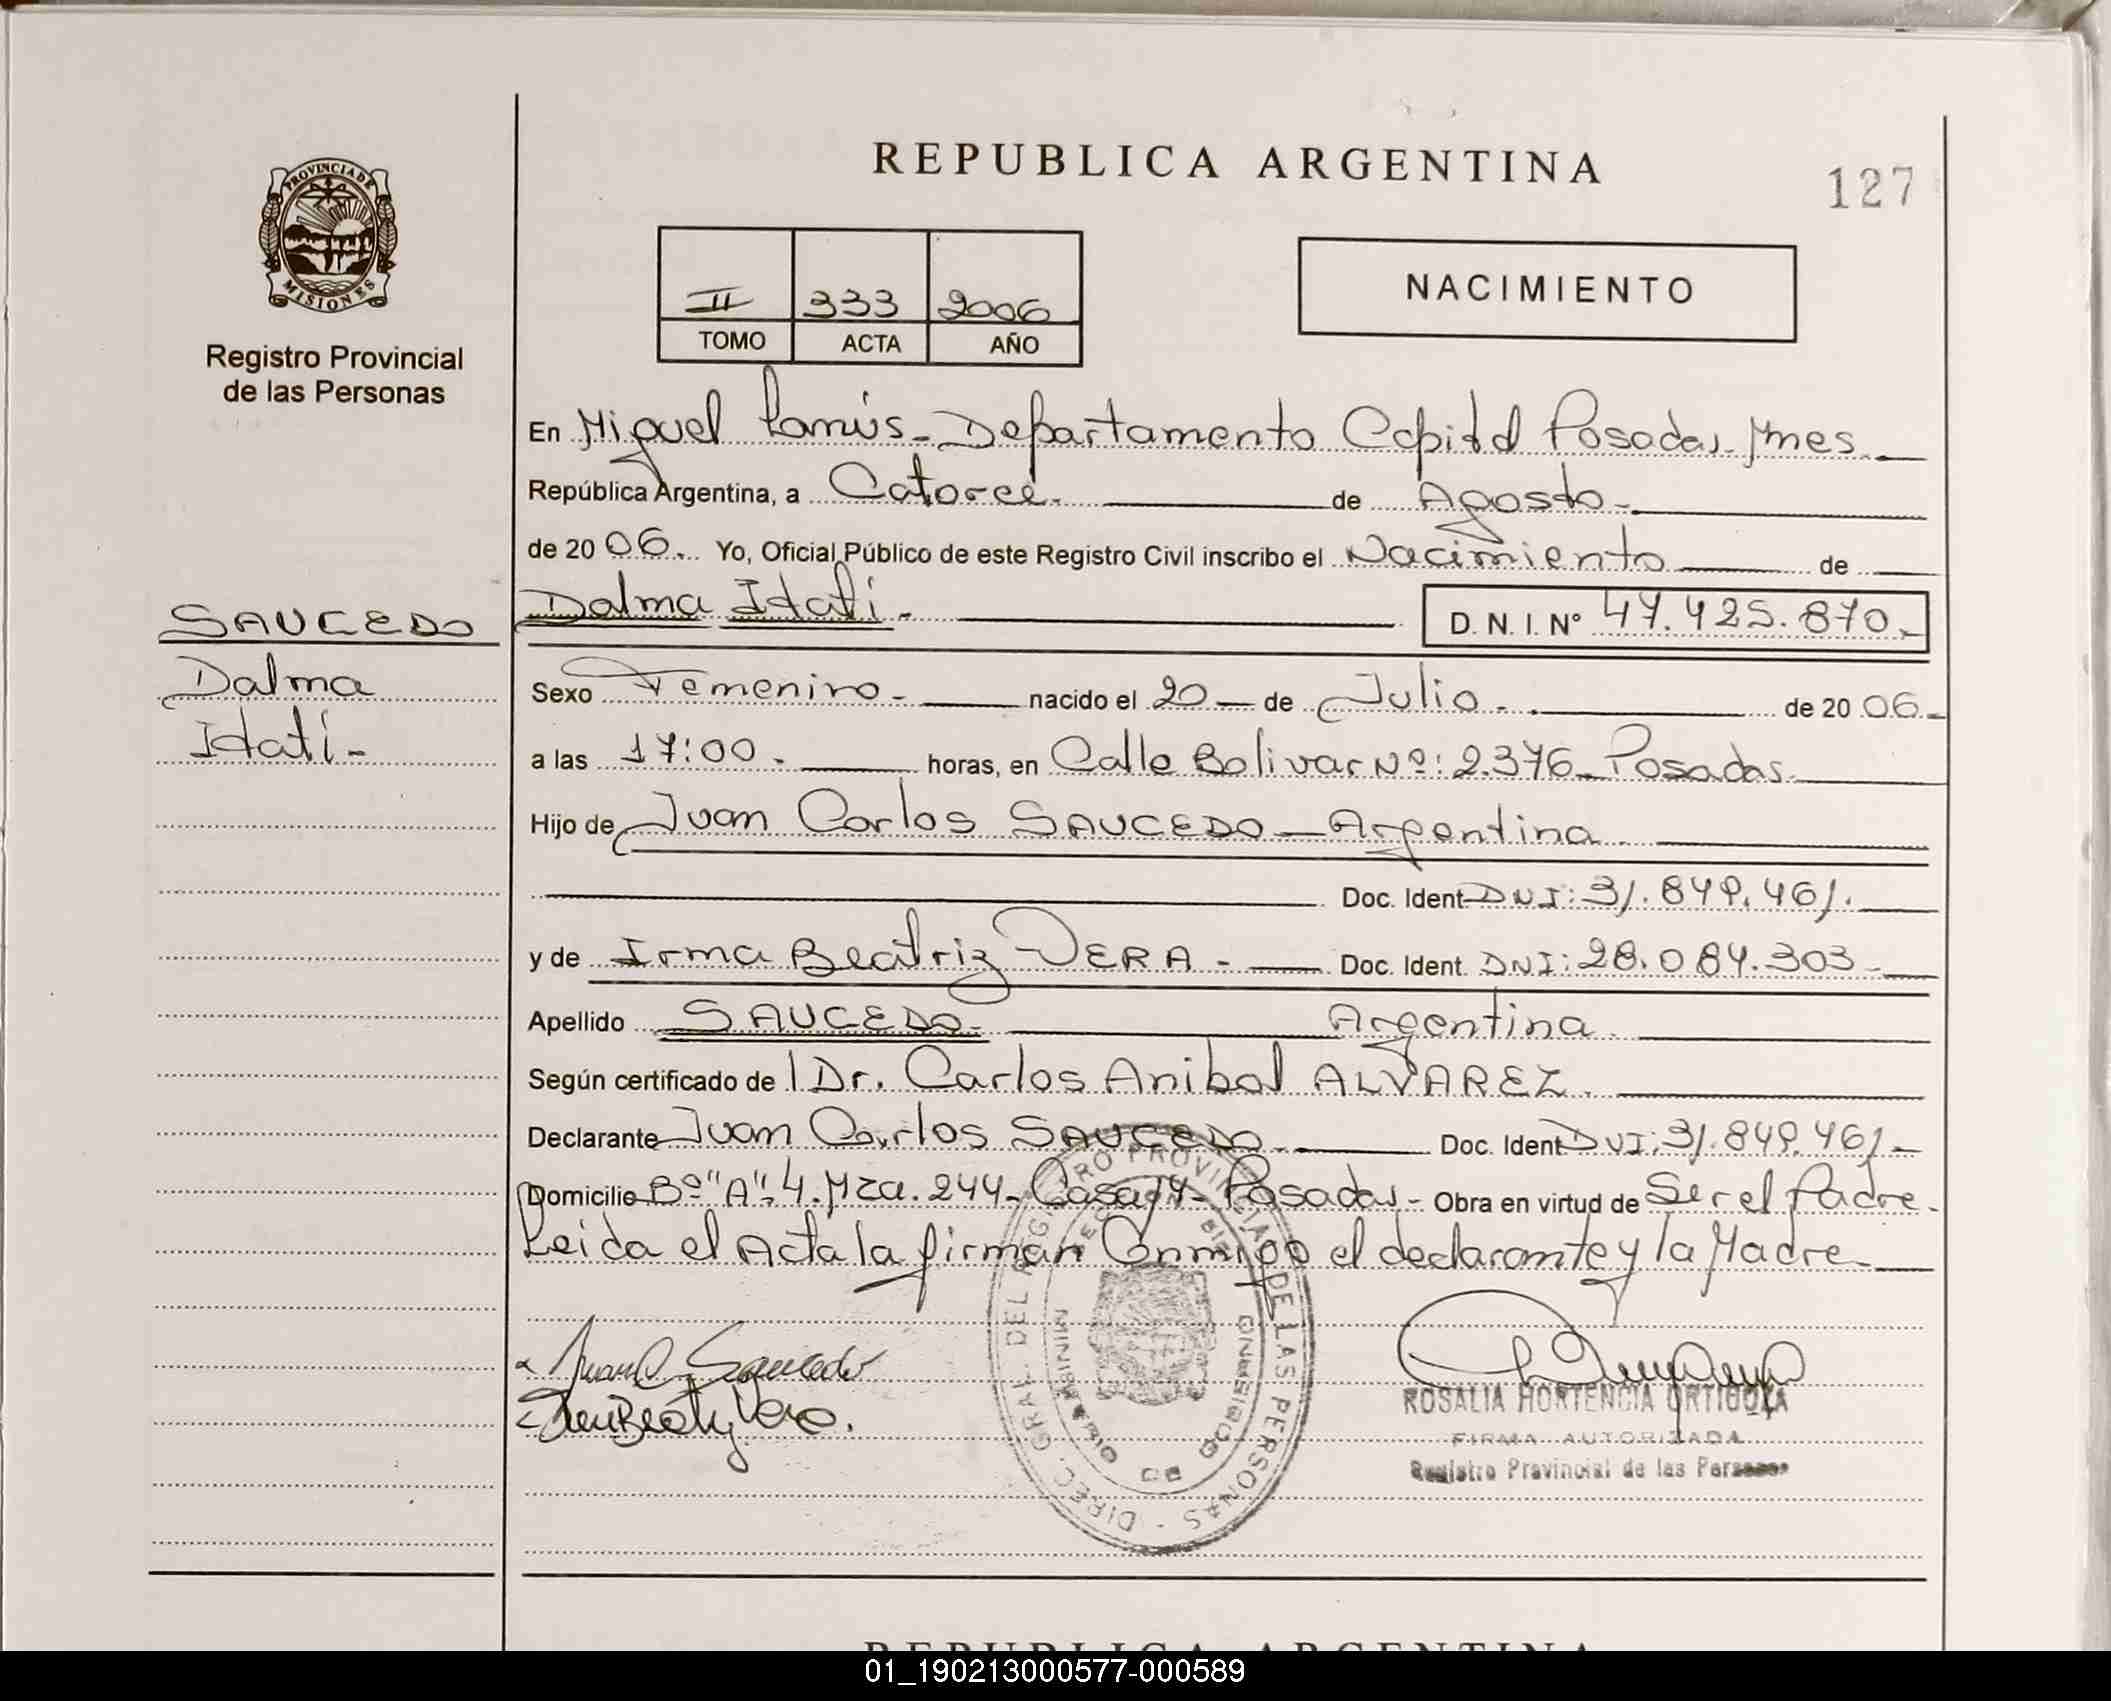 REPUBLICA ARGENTINA
127
PROVINCIA DE MISIONES
Registro Provincial
de las Personas
II 333 2006
TOMO ACTA AÑO
NACIMIENTO
En Miguel Lanús - Departamento Capital Posadas Mnes.
República Argentina, a Catorce. de Agosto -
de 20 06. Yo, Oficial Público de este Registro Civil inscribo el Nacimiento de
SAUCEDO
Dalma
Itatí -
Dalma Itatí - D. N. I. Nº 47.425.870.-
Sexo Femenino - nacido el 20 de Julio - de 20 06 -
a las 17:00 - horas, en Calle Bolivar Nº: 2.376 - Posadas.
Hijo de Juan Carlos SAUCEDO - Argentina
Doc. Ident DNI: 31.849.461.
y de Irma Beatriz VERA - Doc. Ident. DNI: 28.084.303 -
Apellido SAUCEDO - Argentina.
Según certificado de l Dr. Carlos Anibal ALVAREZ.
Declarante Juan Carlos SAUCEDO - Doc. Ident DNI: 31.849.461 -
Domicilio Bº "A" 4. Mza. 244 - Casa 14 - Posadas - Obra en virtud de Ser el Padre -
Leida el Acta la firman Conmigo el declarante y la Madre
Juan C Saucedo
DIREC. GRAL. DEL REGISTRO PROVINCIAL DE LAS PERSONAS -
MINISTERIO DE GOBIERNO
ROSALIA HORTENCIA ORTIGOZA
FIRMA AUTORIZADA
Registro Provincial de las Personas
REPUBLICA ARGENTINA
01_190213000577-000589